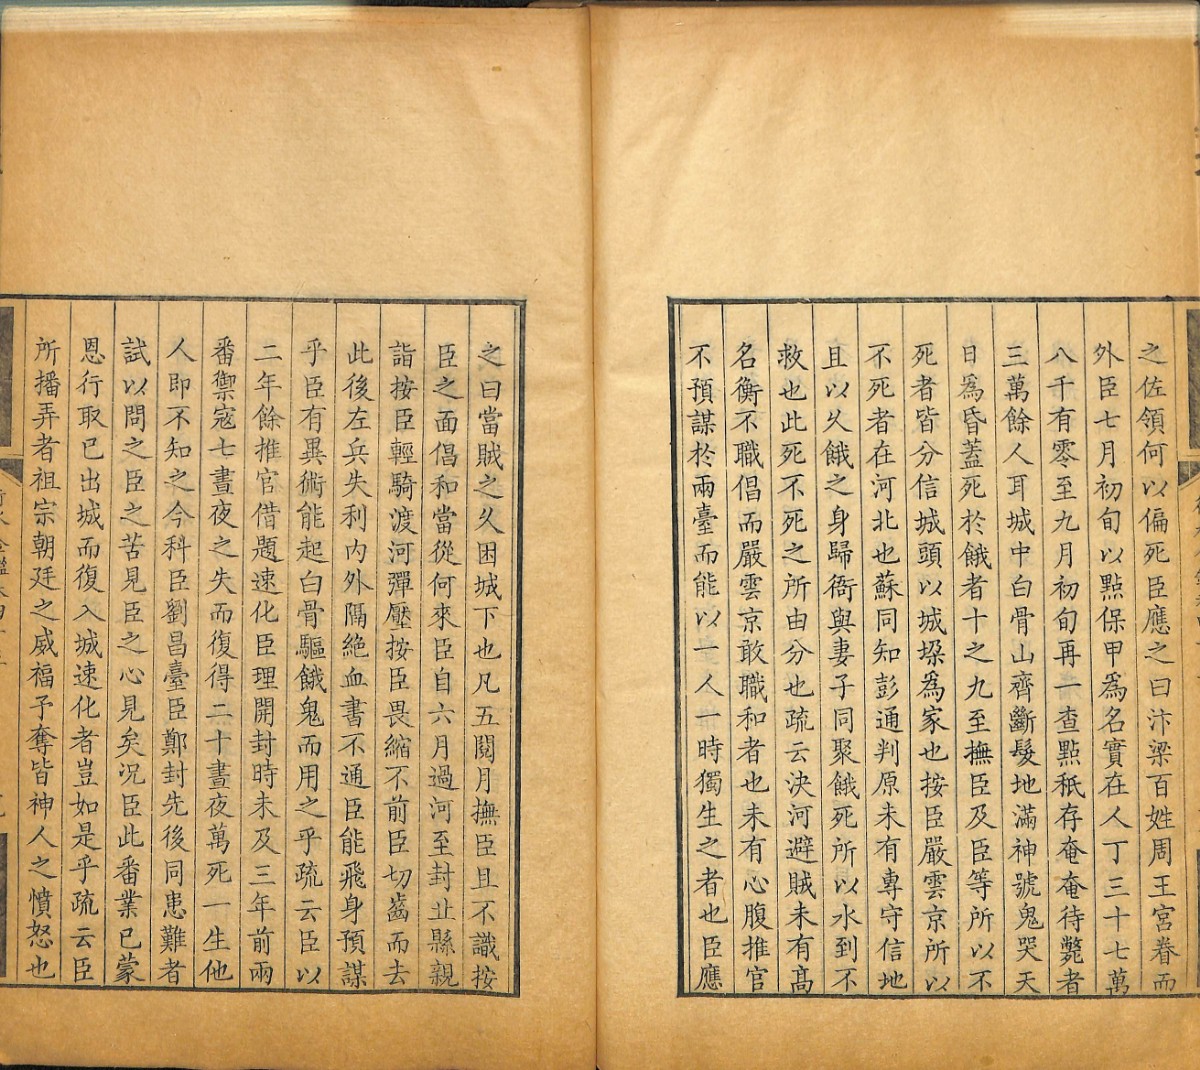 之佐領何以偏死臣應之曰汴梁百姓周王宮眷而
外臣七月初旬以點保甲爲名實在人丁三十七萬
八千有零至九月初旬再一查點秪存奄奄待斃者
三萬餘人耳城中白骨山齊斷髮地滿神號鬼哭天
日爲昏蓋死於餓者十之九至撫臣及臣等所以不
死者皆分信城頭以城垜爲家也按臣嚴雲京所以
不死者在河北也蘇同知彭通判原未有專守信地
且以久餓之身歸衙與妻子同聚餓死所以水到不
救也此死不死之所由分也疏云決河避賊未有高
名衡不職倡而嚴雲京敢職和者也未有心腹推官
不預謀於兩臺而能以一人一時獨生之者也臣應
之曰當賊之久困城下也凡五閱月撫臣且不識按
臣之面倡和當從何來臣自六月過河至封丘縣親
詣按臣輕騎渡河彈壓按臣畏縮不前臣切齒而去
此後左兵失利內外隔絕血書不通臣能飛身預謀
乎臣有異術能起白骨驅餓鬼而用之乎疏云臣以
二年餘推官借題速化臣理開封時未及三年前兩
番禦寇七晝夜之失而復得二十晝夜萬死一生他
人即不知之今科臣劉昌臺臣鄭封先後同患難者
試以問之臣之苦見臣之心見矣況臣此番業已蒙
恩行取已出城而復入城速化者豈如是乎疏云臣
所播弄者祖宗朝廷之威福予奪皆神人之憤怒也